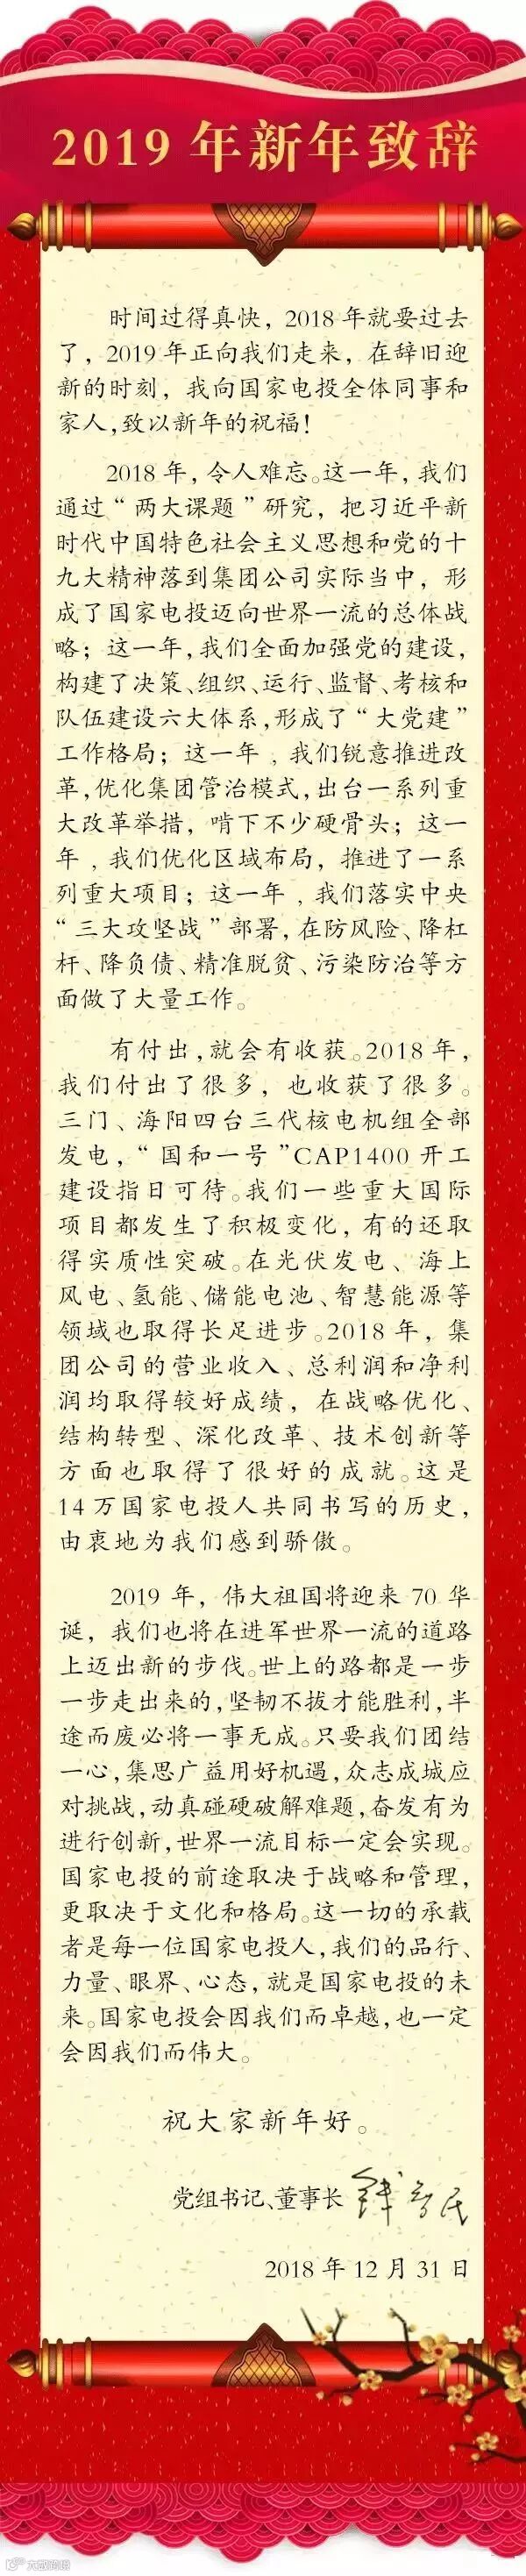 2019年新年致辞
时间过得真快，2018年就要过去
了，2019年正向我们走来，在辞旧迎
新的时刻，我向国家电投全体同事和
家人，致以新年的祝福！
2018年，令人难忘。这一年，我们
通过“两大课题”研究，把习近平新
时代中国特色社会主义思想和党的十
九大精神落到集团公司实际当中，形
成了国家电投迈向世界一流的总体战
略；这一年，我们全面加强党的建设，
构建了决策、组织、运行、监督、考核和
队伍建设六大体系，形成了“大党建”
工作格局；这一年，我们锐意推进改
革，优化集团管治模式，出台一系列重
大改革举措，啃下不少硬骨头；这一
年，我们优化区域布局，推进了一系
列重大项目；这一年，我们落实中央
“三大攻坚战”部署，在防风险、降杠
杆、降负债、精准脱贫、污染防治等方
面做了大量工作。
有付出，就会有收获。2018年，
我们付出了很多，也收获了很多。
三门、海阳四台三代核电机组全部
发电，“国和一号”CAP1400开工
建设指日可待。我们一些重大国际
项目都发生了积极变化，有的还取
得实质性突破。在光伏发电、海上
风电、氢能、储能电池、智慧能源等
领域也取得长足进步。2018年，集
团公司的营业收入、总利润和净利
润均取得较好成绩，在战略优化、
结构转型、深化改革、技术创新等
方面也取得了很好的成就。这是
14万国家电投人共同书写的历史，
由衷地为我们感到骄傲。
2019年，伟大祖国将迎来70华
诞，我们也将在进军世界一流的道路
上迈出新的步伐。世上的路都是一步
一步走出来的，坚韧不拔才能胜利，半
途而废必将一事无成。只要我们团结
一心，集思广益用好机遇，众志成城应
对挑战，动真碰硬破解难题，奋发有为
进行创新，世界一流目标一定会实现。
国家电投的前途取决于战略和管理，
更取决于文化和格局。这一切的承载
者是每一位国家电投人，我们的品行、
力量、眼界、心态，就是国家电投的未
来。国家电投会因我们而卓越，也一定
会因我们而伟大。
祝大家新年好。
党组书记、董事长 钱智民
2018年12月31日